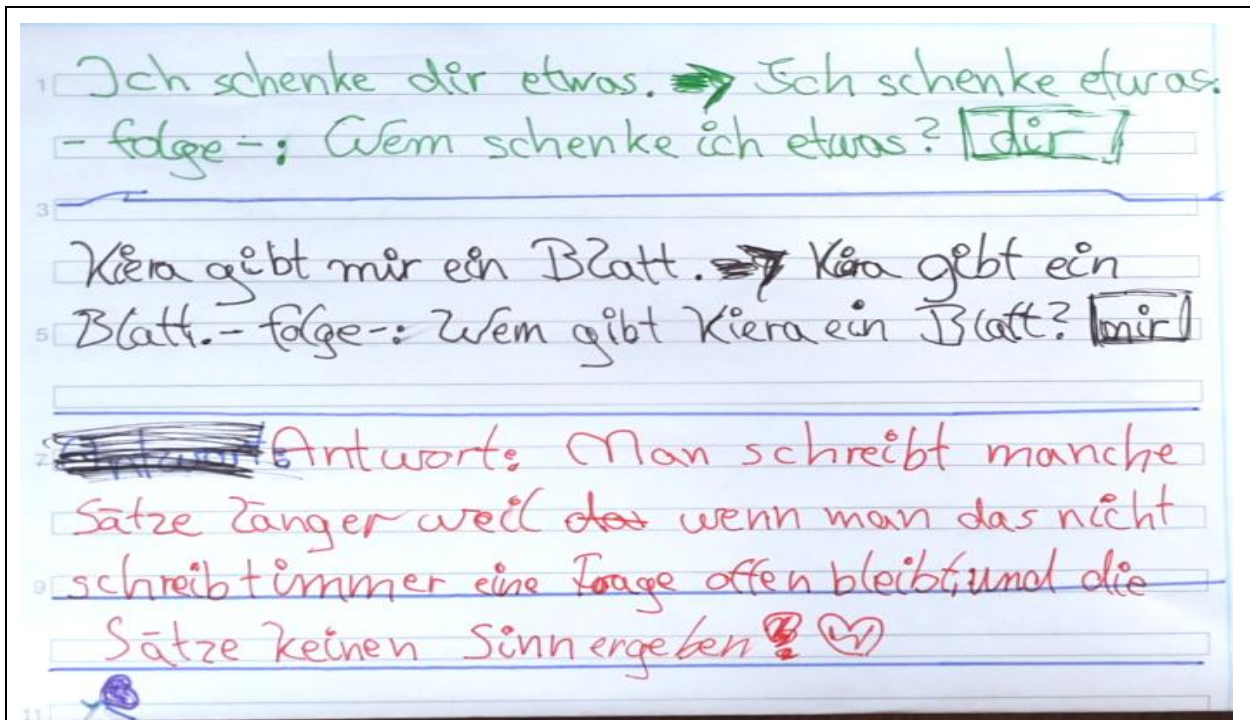 Ich schenke dir etwas. → Ich schenke etwas.
- folge -: Wem schenke ich etwas? dir
Kiera gibt mir ein Blatt. → Kiera gibt ein
Blatt. - folge -: Wem gibt Kiera ein Blatt? mir
Antwort: Man schreibt manche
Sätze länger weil wenn man das nicht
schreibt immer eine Frage offen bleibt, und die
Sätze keinen Sinn ergeben!